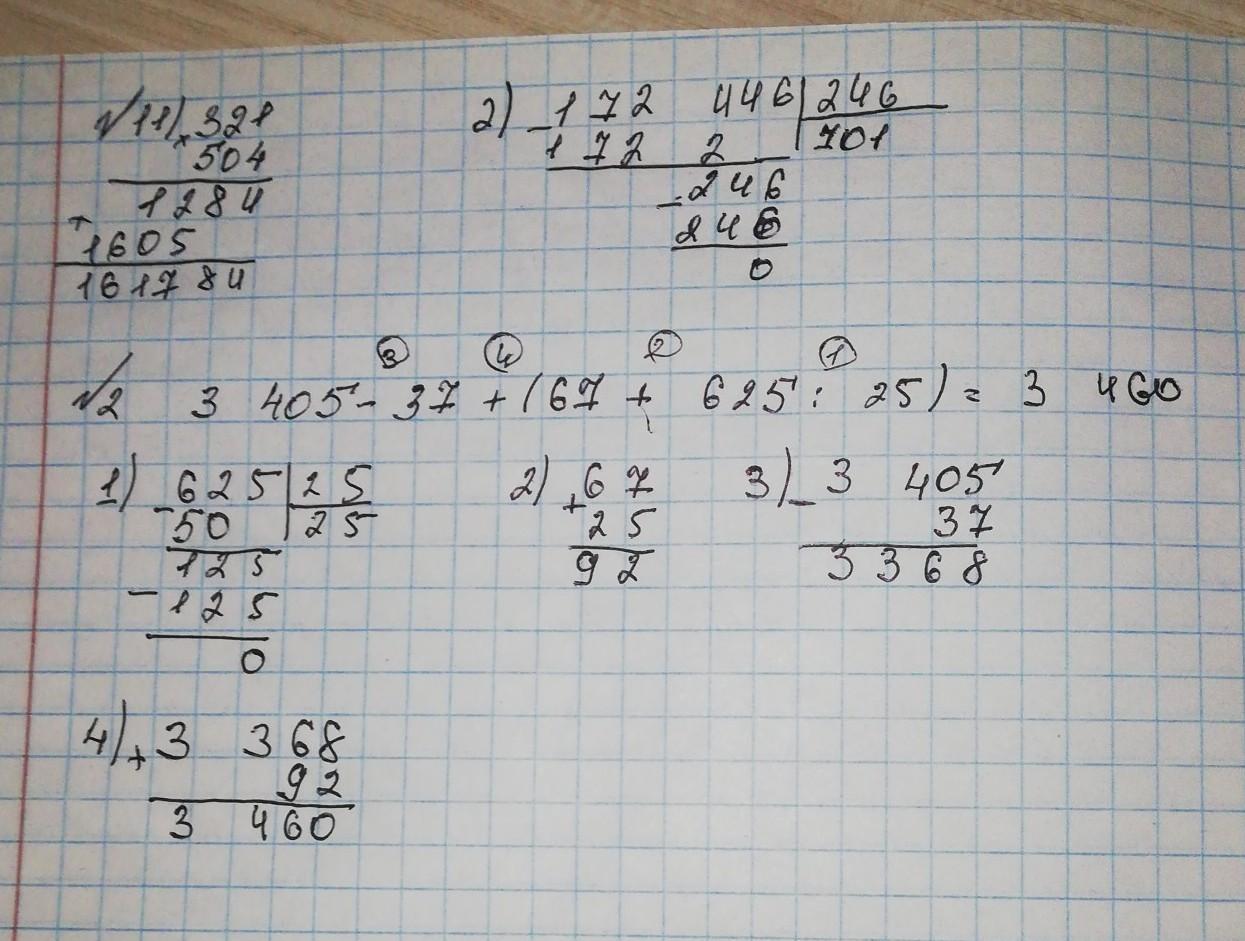 №1 1) × 321
504
1284
+ 1605
161784
2) - 172 446 | 246
172 2 | 701
- 246
246
0
③ ④ ② ①
№2 3 405 - 37 + (67 + 625 : 25) = 3 460
1) - 625 | 25
50 | 25
125
- 125
0
2) + 67
25
92
3) - 3 405
37
3 368
4) + 3 368
92
3 460